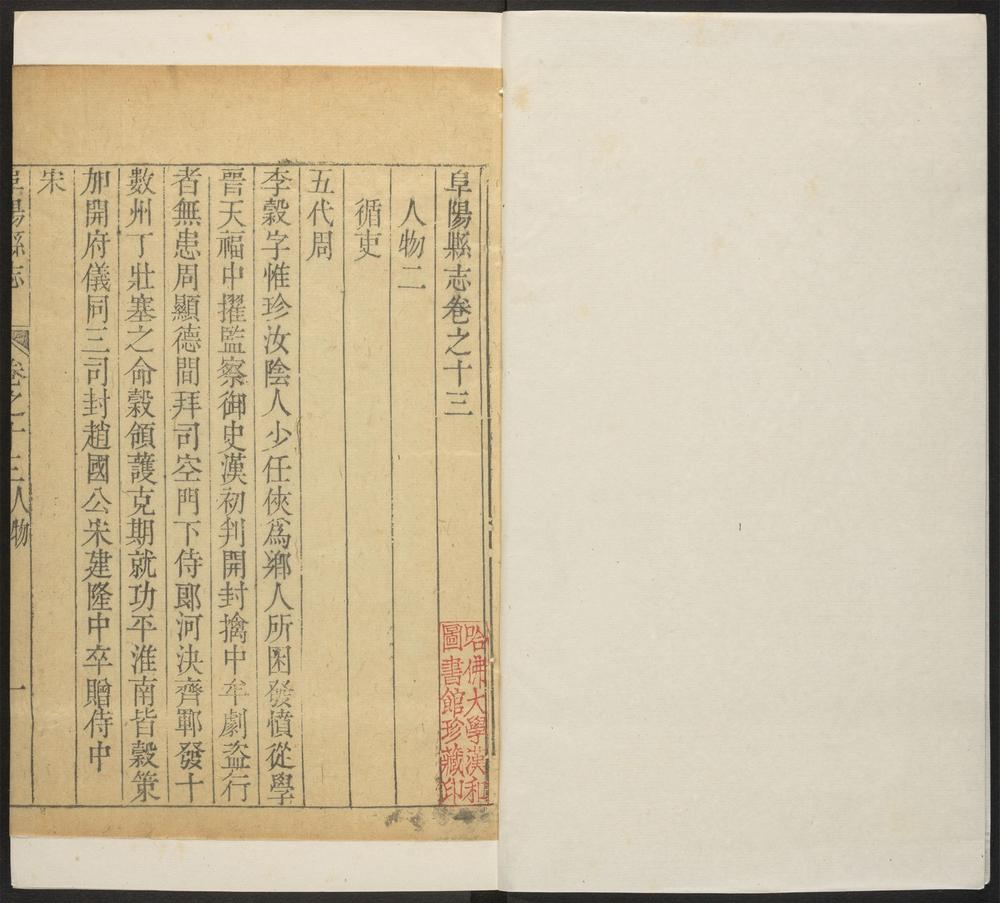 阜陽縣志卷之十三
人物二
循吏
五代周
李穀字惟珍汝陰人少任俠爲鄕人所困發憤從學
晉天福中擢監察御史漢初判開封擒中牟劇盜行
者無患周顯德間拜司空門下侍郞河決齊鄆發十
數州丁壯塞之命穀領護克期就功平淮南皆穀策
加開府儀同三司封趙國公宋建隆中卒贈侍中
宋
阜陽縣志 卷之十三人物 一
哈佛大學漢和
圖書館珍藏印